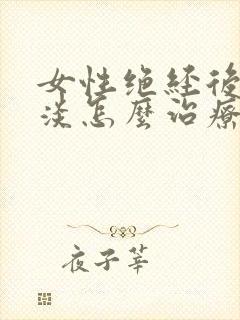 女性绝经後
淡怎麼治療
夜子莘